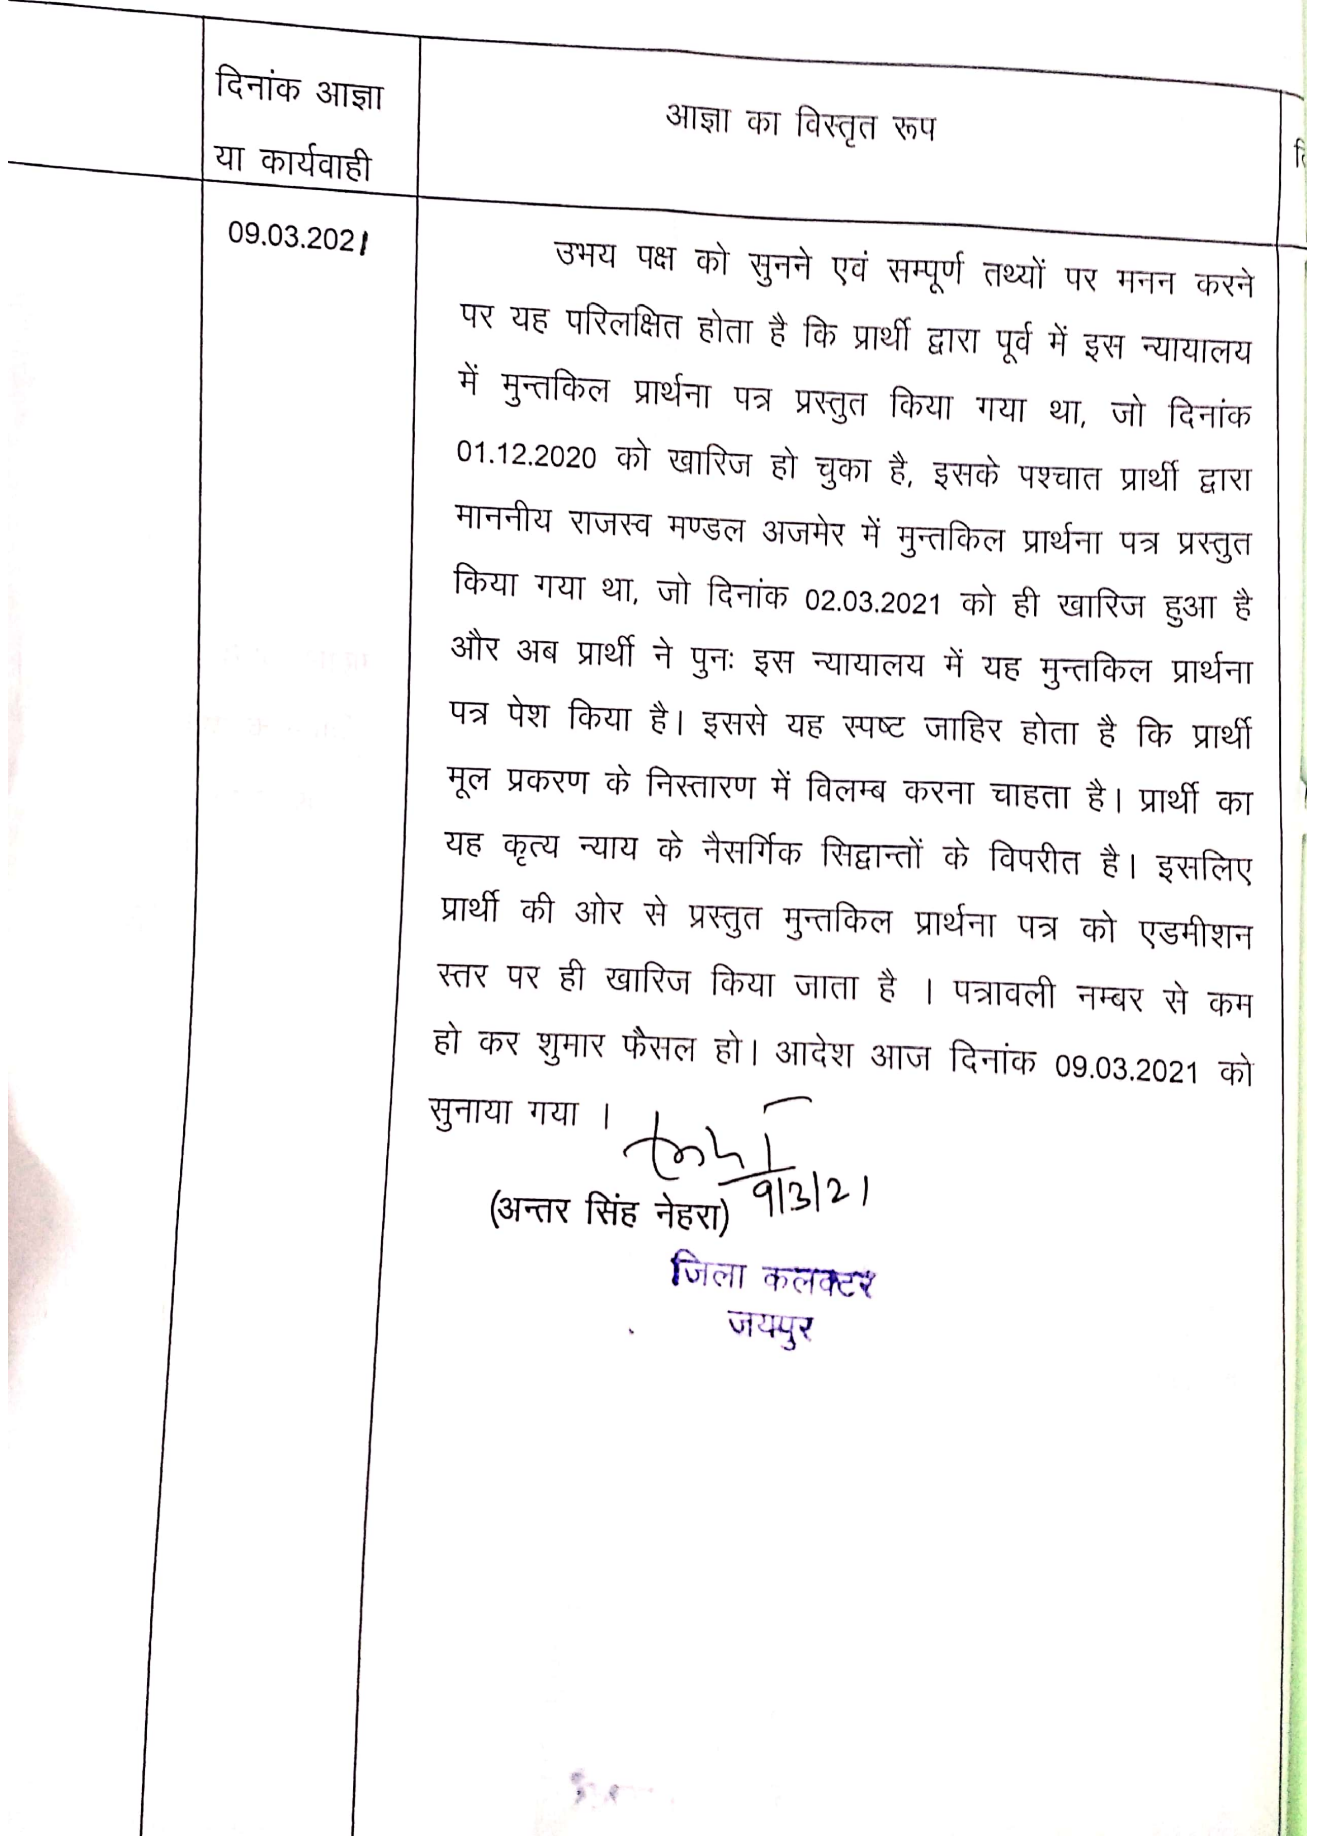 दिनांक आज्ञा
या कार्यवाही
आज्ञा का विस्तृत रूप
09.03.2021
उभय पक्ष को सुनने एवं सम्पूर्ण तथ्यों पर मनन करने
पर यह परिलक्षित होता है कि प्रार्थी द्वारा पूर्व में इस न्यायालय
में मुन्तकिल प्रार्थना पत्र प्रस्तुत किया गया था, जो दिनांक
01.12.2020 को खारिज हो चुका है, इसके पश्चात प्रार्थी द्वारा
माननीय राजस्व मण्डल अजमेर में मुन्तकिल प्रार्थना पत्र प्रस्तुत
किया गया था, जो दिनांक 02.03.2021 को ही खारिज हुआ है
और अब प्रार्थी ने पुनः इस न्यायालय में यह मुन्तकिल प्रार्थना
पत्र पेश किया है। इससे यह स्पष्ट जाहिर होता है कि प्रार्थी
मूल प्रकरण के निस्तारण में विलम्ब करना चाहता है। प्रार्थी का
यह कृत्य न्याय के नैसर्गिक सिद्वान्तों के विपरीत है। इसलिए
प्रार्थी की ओर से प्रस्तुत मुन्तकिल प्रार्थना पत्र को एडमीशन
स्तर पर ही खारिज किया जाता है । पत्रावली नम्बर से कम
हो कर शुमार फैसल हो। आदेश आज दिनांक 09.03.2021 को
सुनाया गया ।
9/3/21
(अन्तर सिंह नेहरा)
जिला कलक्टर
जयपुर